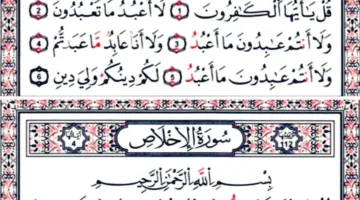 قُلْ يَٰٓأَيُّهَا ٱلْكَٰفِرُونَ ١ لَآ أَعْبُدُ مَا تَعْبُدُونَ ٢
وَلَآ أَنتُمْ عَٰبِدُونَ مَآ أَعْبُدُ ٣ وَلَآ أَنَا۠ عَابِدٌ مَّا عَبَدتُّمْ ٤
وَلَآ أَنتُمْ عَٰبِدُونَ مَآ أَعْبُدُ ٥ لَكُمْ دِينُكُمْ وَلِيَ دِينِ ٦
سُورَةُ الإِخْلَاصِ
بِسْمِ ٱللَّهِ ٱلرَّحْمَٰنِ ٱلرَّحِيمِ